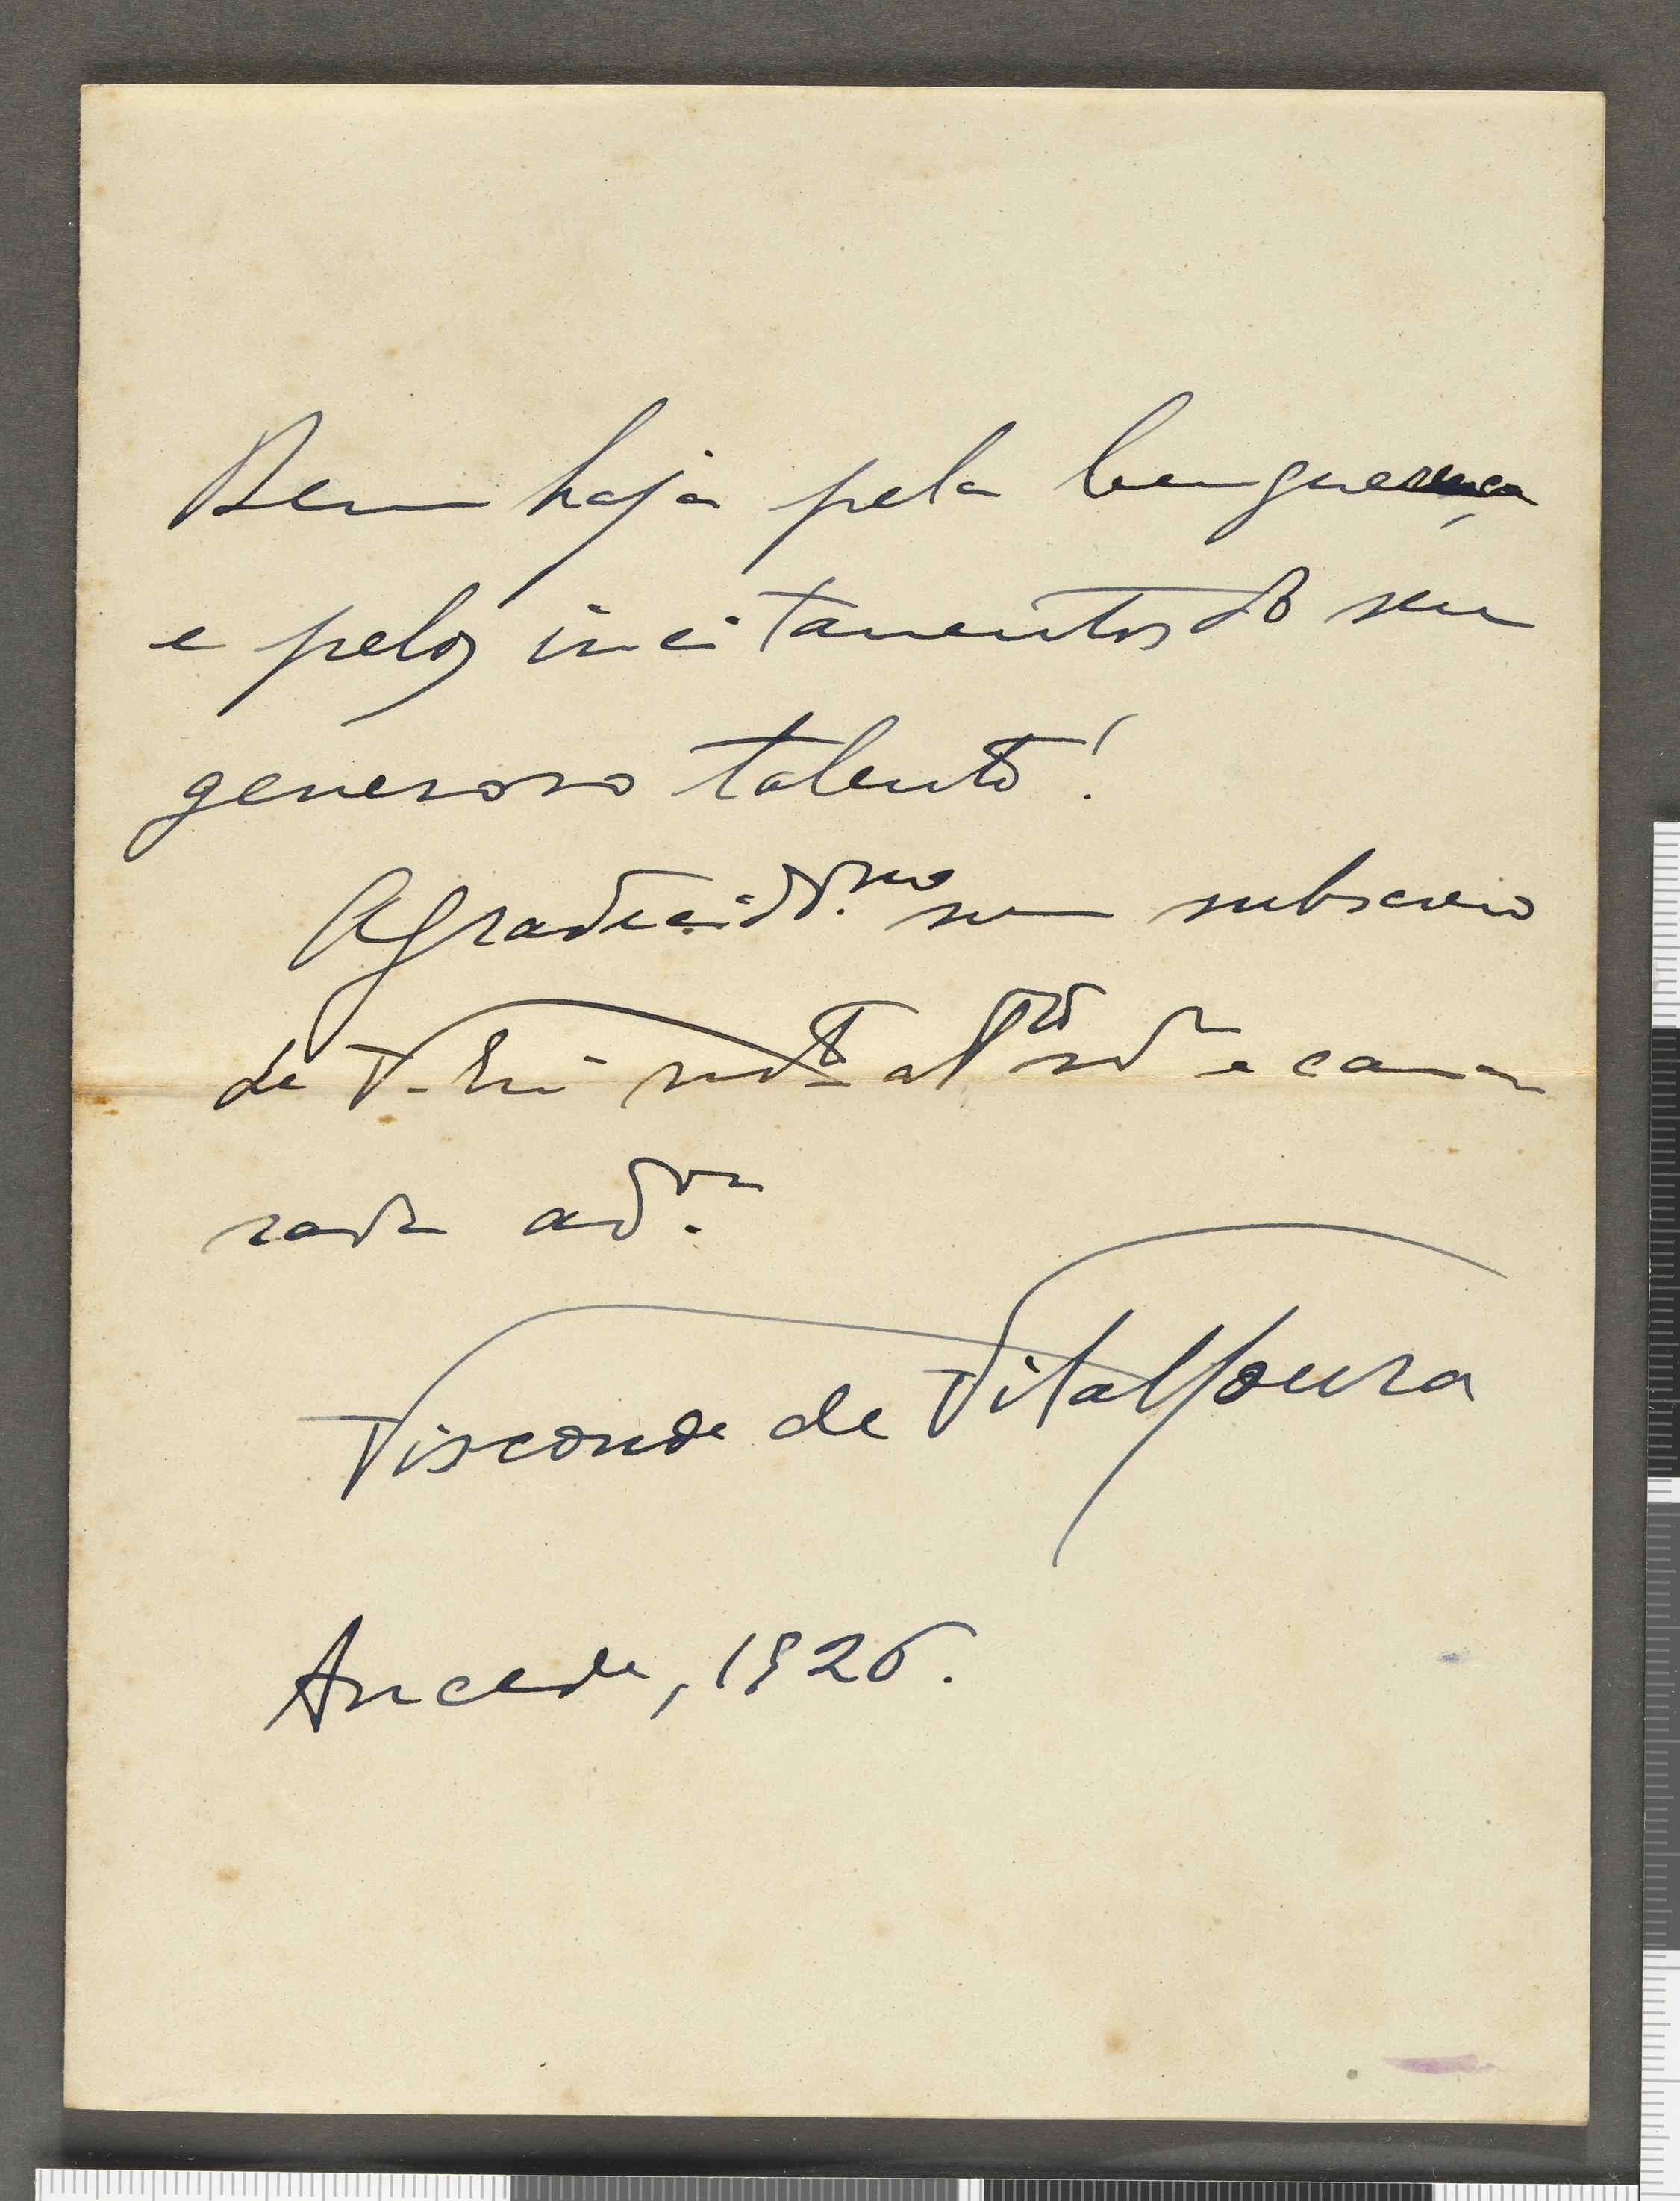 Bem haja pela bemquerença
e pelos incitamentos do seu
generoso talento!
Agradecidmo me subscrevo
de V. Ex
rada ador
Visconde de VilalMoura
Ancede, 1926.